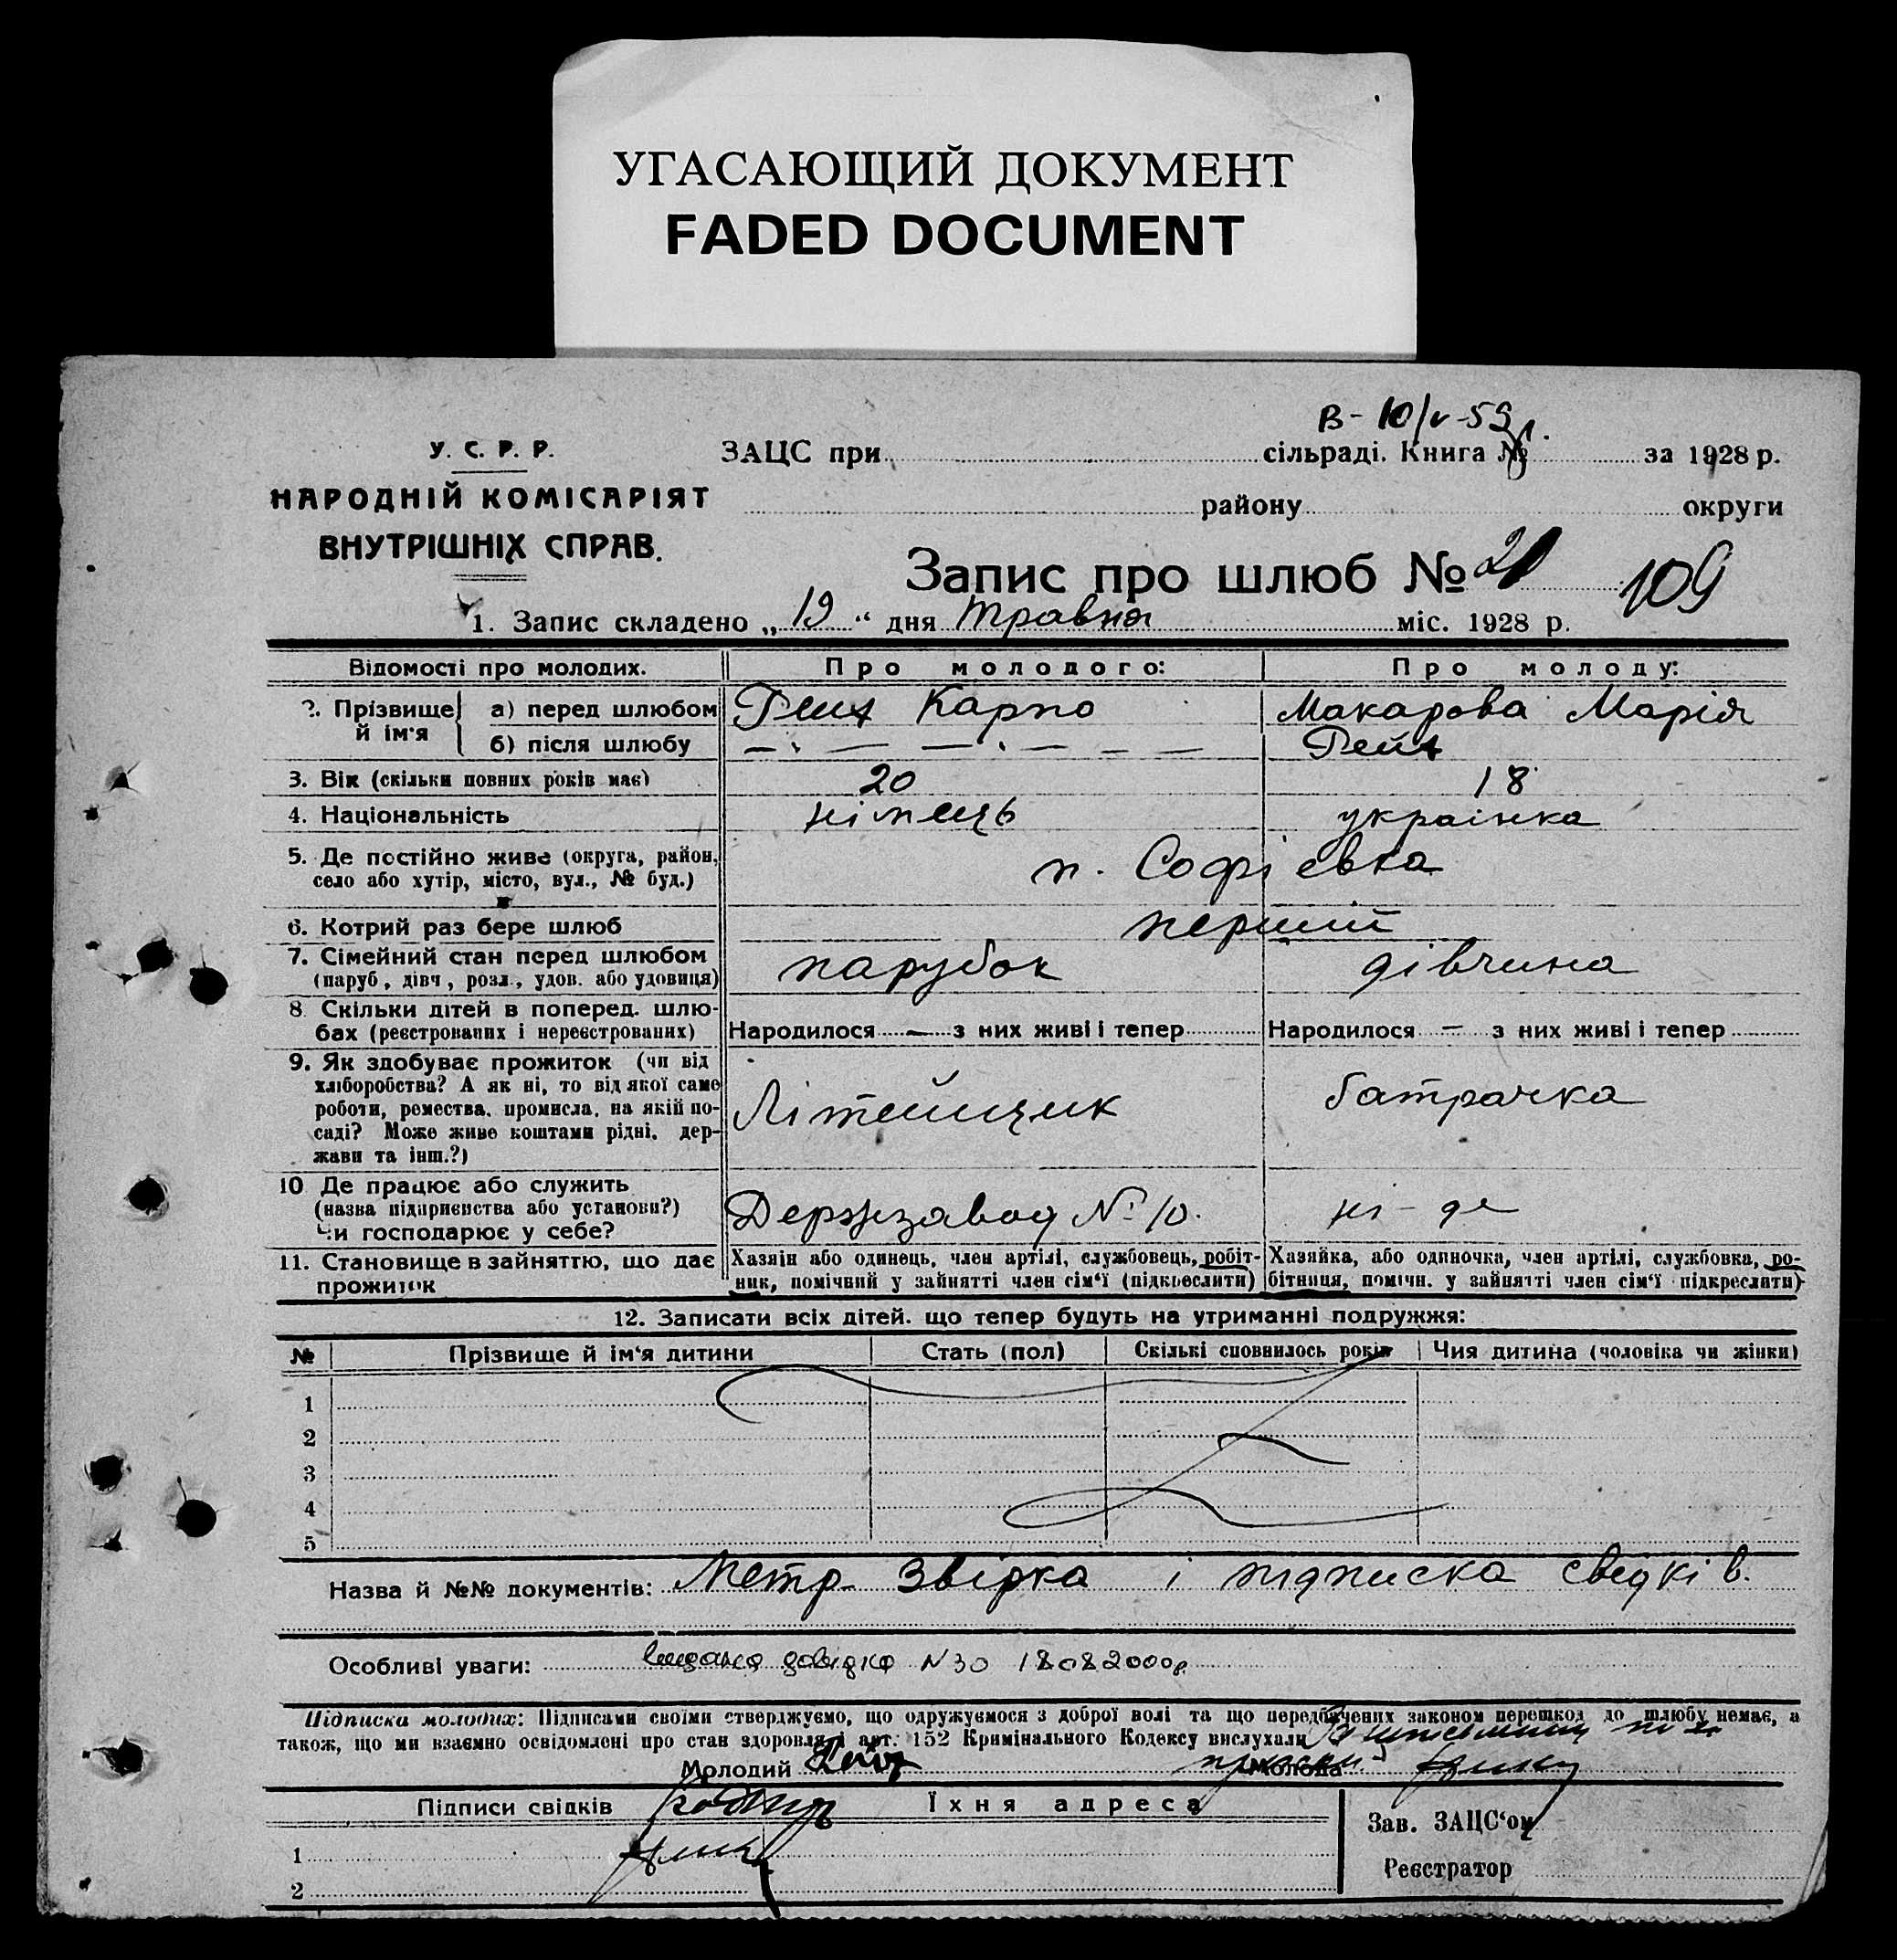 УГАСАЮЩИЙ ДОКУМЕНТ
FADED DOCUMENT
В - 10/V-59
У. С. Р. Р.
НАРОДНІЙ КОМІСАРІЯТ
ВНУТРІШНІХ СПРАВ.
ЗАЦС при сільраді. Книга № за 1928 р.
району округи
Запис про шлюб № 21 109
1. Запис складено „19“ дня травня міс. 1928 р.
Відомості про молодих. Про молодого: Про молоду:
2. Прізвище й ім'я а) перед шлюбом Рейх Карпо Макарова Марія
б) після шлюбу — " — — " — — — Рейх
3. Вік (скільки повних років має) 20 18
4. Національність німець українка
5. Де постійно живе (округа, район,
село або хутір, місто, вул., № буд.) п. Софієвка
6. Котрий раз бере шлюб перший
7. Сімейний стан перед шлюбом парубок дівчина
(паруб, дівч, розл., удов. або удовиця)
8. Скільки дітей в поперед. шлю-
бах (реєстрованих і нереєстрованих) Народилося — з них живі і тепер Народилося — з них живі і тепер
9. Як здобуває прожиток (чи від
хліборобства? А як ні, то від якої саме
роботи, ремества, промисла, на якій по-
саді? Може живе коштами рідні, дер-
жави та інш.?) Літейщик батрачка
10 Де працює або служить
(назва підприєнства або установи?)
Чи господарює у себе? Держзавод № 10. ні-де
11. Становище в зайняттю, що дає
прожиток
Хазяїн або одинець, член артілі, службовець, робіт-
ник, помічний у зайнятті член сім'ї (підкреслити)
Хазяйка, або одиночка, член артілі, службовка, ро-
бітниця, помічн. у зайнятті член сім'ї підкреслити)
12. Записати всіх дітей. що тепер будуть на утриманні подружжя:
№ Прізвище й ім'я дитини Стать (пол) Скількі сповнилось років Чия дитина (чоловіка чи жінки)
1
2
3
4
5
Назва й №№ документів: Метр. Звірка і підписка свідків.
Особливі уваги: видана довідка N30 18082000р
Підписка молодих: Підписами своїми стверджуємо, що одружуємося з доброї волі та що передбачених законом перешкод до шлюбу немає, а
також, що ми взаємно освідомлені про стан здоровля і арт. 152 Кримінального Кодексу вислухали
Молодий Рейх Молода
Підписи свідків Їхня адреса Зав. ЗАЦС'ом
1
Реєстратор
2